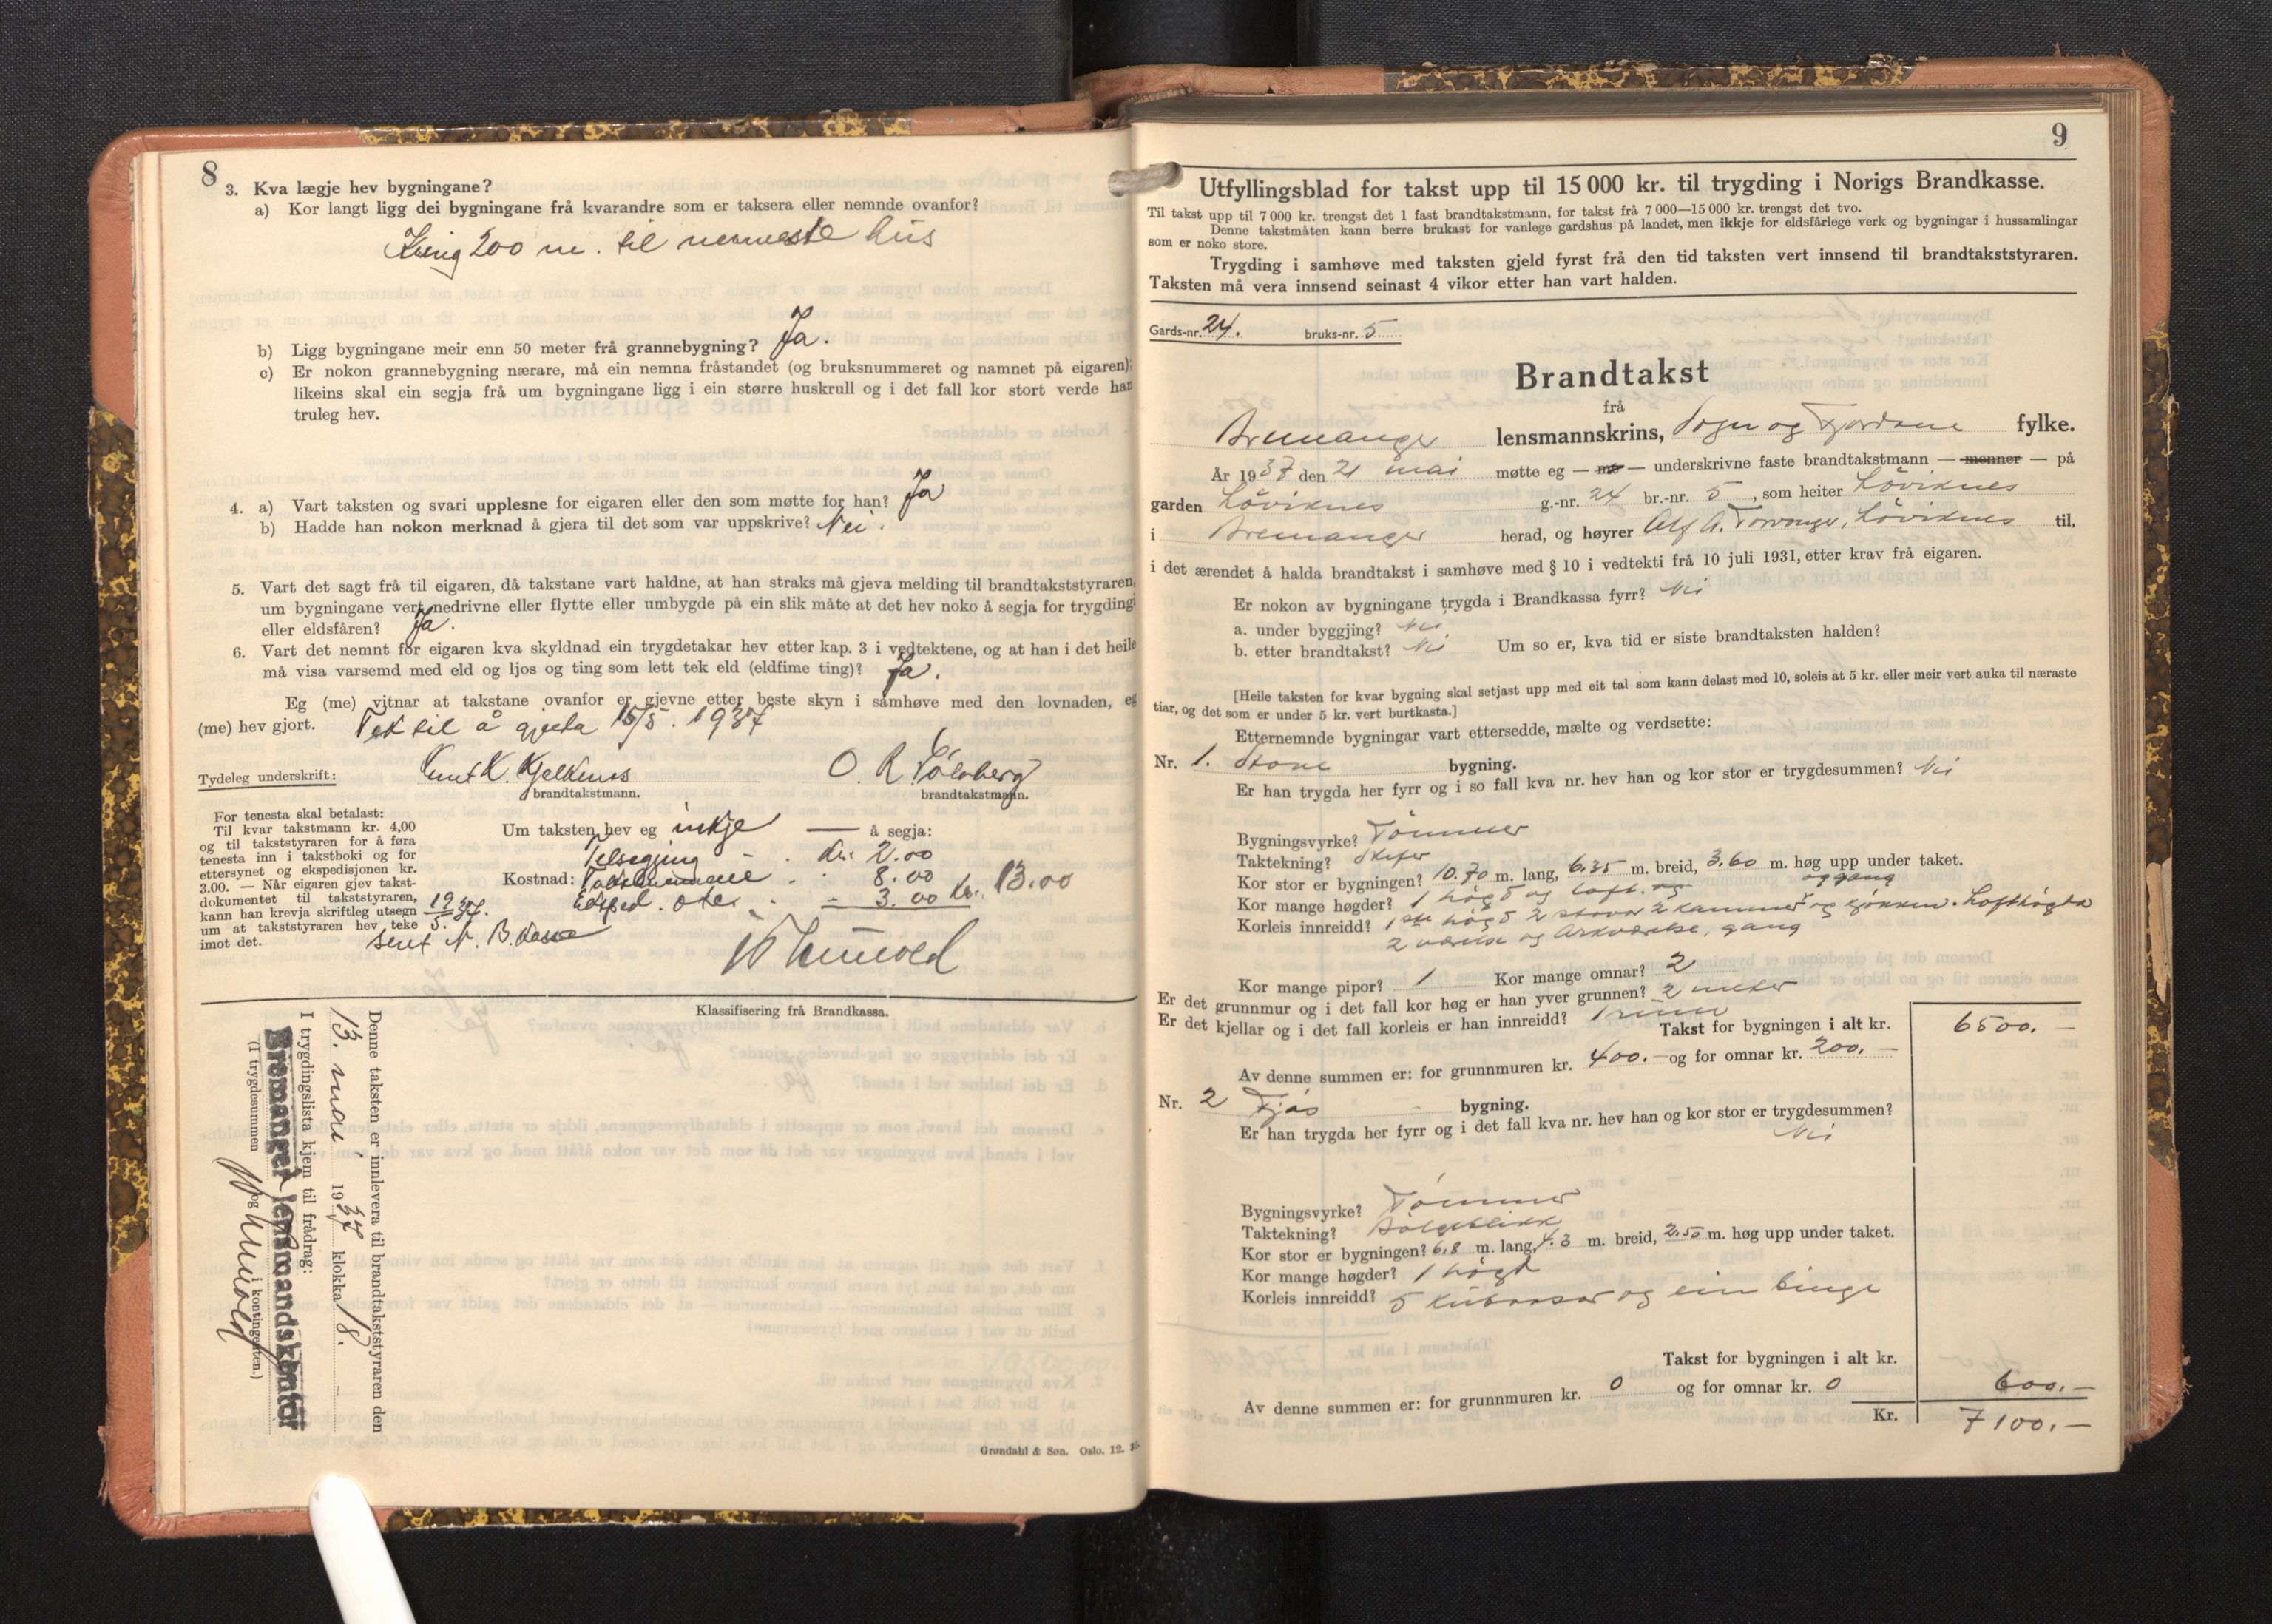 8
3. Kva lægje hev bygningane?
a) Kor langt ligg dei bygningane frå kvarandre som er taksera eller nemnde ovanfor?
200 m. til nærmeste hus
b) Ligg bygningane meir enn 50 meter frå grannebygning? Ja.
c) Er nokon grannebygning nærare, må ein nemna fråstandet (og bruksnummeret og namnet på eigaren);
likeins skal ein segja frå um bygningane ligg i ein større huskrull og i det fall kor stort verde han
truleg hev.
4. a) Vart taksten og svari upplesne for eigaren eller den som møtte for han? Ja
b) Hadde han nokon merknad å gjera til det som var uppskrive? Nei.
5. Vart det sagt frå til eigaren, då takstane vart haldne, at han straks må gjeva melding til brandtakststyraren,
um bygningane vert nedrivne eller flytte eller umbygde på ein slik måte at det hev noko å segja for trygdingi
eller eldsfåren? Ja.
6. Vart det nemnt for eigaren kva skyldnad ein trygdetakar hev etter kap. 3 i vedtektene, og at han i det heile
må visa varsemd med eld og ljos og ting som lett tek eld (eldfime ting)? Ja.
Eg (me) vitnar at takstane ovanfor er gjevne etter beste skyn i samhøve med den lovnaden, eg
(me) hev gjort. Tek til å gjelda 15/5. 1937
Tydeleg underskrift: Knut K. O. R.
brandtakstmann. brandtakstmann.
For tenesta skal betalast:
Til kvar takstmann kr. 4,00
og til takststyraren for å føra
tenesta inn i takstboki og for
ettersynet og ekspedisjonen kr.
3.00. — Når eigaren gjev takst-
dokumentet til takststyraren,
kann han krevja skriftleg utsegn
um at takststyraren hev teke
imot det.
Um taksten hev eg inkje — å segja:
Tilsegjing - . Kr: 2.00
Kostnad: Takstmennene . " 8.00
Eksped. - 3.00 Kr. 13.00
19/5.37.
sent N. B.kasse
Klassifisering frå Brandkassa.
Denne taksten er innlevera til brandtakststyraren den
13. mai, 1937 klokka 18.
I trygdingslista kjem til frådrag:
Bremanger lensmandskontor
(I trygdesummen og i kontingenten.)
Grøndahl & Søn. Oslo. 12.
9
Utfyllingsblad for takst upp til 15 000 kr. til trygding i Norigs Brandkasse.
Til takst upp til 7 000 kr. trengst det 1 fast brandtakstmann, for takst frå 7 000—15 000 kr. trengst det tvo.
Denne takstmåten kann berre brukast for vanlege gardshus på landet, men ikkje for eldsfårlege verk og bygningar i hussamlingar
som er noko store.
Trygding i samhøve med taksten gjeld fyrst frå den tid taksten vert innsend til brandtakststyraren.
Taksten må vera innsend seinast 4 vikor etter han vart halden.
Gards-nr. 24. bruks-nr. 5
Brandtakst
frå
Bremanger lensmannskrins, Sogn og Fjordane fylke.
År 1937 den 21 mai møtte eg — me — underskrivne faste brandtakstmann — menner — på
garden Løviknes g.-nr. 24 br.-nr. 5, som heiter Løviknes
i Bremanger herad, og høyrer Alf A. Torvanger, Løviknes til,
i det ærendet å halda brandtakst i samhøve med § 10 i vedtekti frå 10 juli 1931, etter krav frå eigaren.
Er nokon av bygningane trygda i Brandkassa fyrr? Nei
a. under byggjing? Nei
b. etter brandtakst? Nei Um so er, kva tid er siste brandtaksten halden?
[Heile taksten for kvar bygning skal setjast upp med eit tal som kann delast med 10, soleis at 5 kr. eller meir vert auka til næraste
tiar, og det som er under 5 kr. vert burtkasta.]
Etternemnde bygningar vart ettersedde, mælte og verdsette:
Nr. 1. Stove bygning.
Er han trygda her fyrr og i so fall kva nr. hev han og kor stor er trygdesummen? Nei
Bygningsvyrke? Tømmer
Taktekning? Skifer
Kor stor er bygningen? 10.70 m. lang, 6.35 m. breid, 3.60 m. høg upp under taket.
Kor mange høgder? 1 høgd og loft.
og gang
Korleis innreidd? 1ste høgd 2 stover 2 kammer og kjøkken. Lofthøgda
2 værelse og Arkværelse, gang
Kor mange pipor? 1 Kor mange omnar? 2
Er det grunnmur og i det fall kor høg er han yver grunnen? 2 meter
Er det kjellar og i det fall korleis er han innreidd? 1 rum
Takst for bygningen i alt kr. 6500.—
Av denne summen er: for grunnmuren kr. 400.— og for omnar kr. 200.—
Nr. 2 Fjøs bygning.
Er han trygda her fyrr og i det fall kva nr. hev han og kor stor er trygdesummen?
Nei
Bygningsvyrke? Tømmer
Taktekning? Bølgeblikk
Kor stor er bygningen? 6.8 m. lang, 4.3 m. breid, 2.50 m. høg upp under taket.
Kor mange høgder? 1 høgd
Korleis innreidd? 5 kubaasar og ein binge
Takst for bygningen i alt kr.
Av denne summen er: for grunnmuren kr. 0 og for omnar kr. 0 600.—
Kr. 7100.—